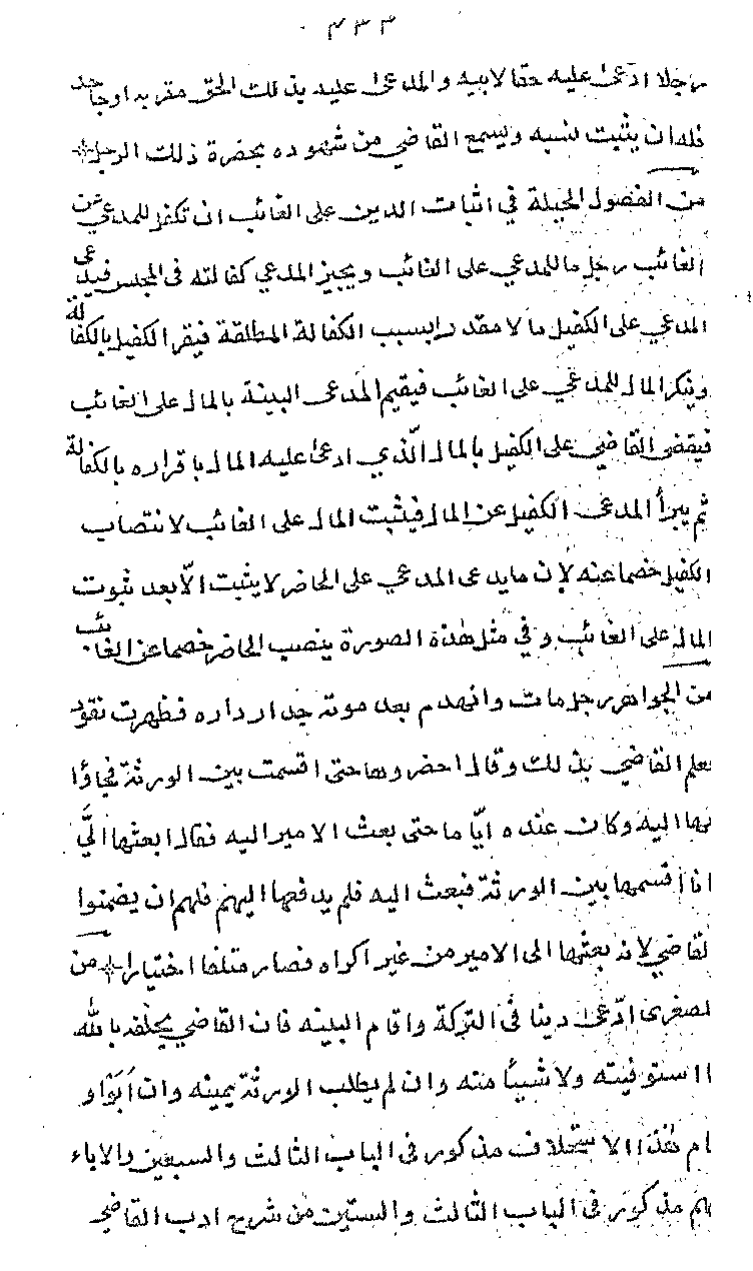 ٤٣٣
رجلا ادعى عليه حقا لابيه والمدعى عليه بذلك الحق مقر به او جاحد
فله ان يثبت نسبه ويسمع القاضي من شهوده بحضرة ذلك الرجل
من الفصول الحيلة في اثبات الدين على الغائب ان تكفل للمدعي عن
الغائب رجل ما للمدعي على الغائب ويجيز المدعي كفالته في المجلس فيدعى
المدعي على الكفيل مالا مقدرا بسبب الكفالة المطلقة فيقر الكفيل بالكفالة
وينكر المال للمدعي على الغائب فيقيم المدعى البينة بالمال على الغائب
فيقضى القاضي على الكفيل بالمال الّذي ادعى عليه المال باقراره بالكفالة
ثم يبرأ المدعى الكفيل عن المال فيثبت المال على الغائب لانتصاب
الكفيل خصما عنه لأن ما يدعى المدعي على الحاضر لا يثبت الّا بعد ثبوت
المال على الغائب وفي مثل هذه الصورة ينصب الحاضر خصما عن الغائب
من الجواهر رجل مات وانهدم بعد موته جدار داره فظهرت نقود
فعلم القاضي بذلك وقال احضروها حتى اقسمت بين الورثة فجاؤا
بها اليه وكان عنده ايّاما حتى بعث الامير اليه فقال ابعثها الىَّ
انا اقسمها بين الورثة فبعث اليه فلم يدفعها اليهم فلهم ان يضمنوا
لقاضي لانه بعثها الى الامير من غير اكراه فصار متلفا اختيارا من
لصغرى ادّعى دينا في التركة واقام البينه فان القاضي يحلفه بالله
ا استوفيته ولا شيأ منه وان لم يطلب الورثة يمينه وان أبوا و
ام هذا الاستحلاف مذكور في الباب الثالث والسبعين والاباء
هم مذكور في الباب الثالث والستين من شرح ادب القاضي